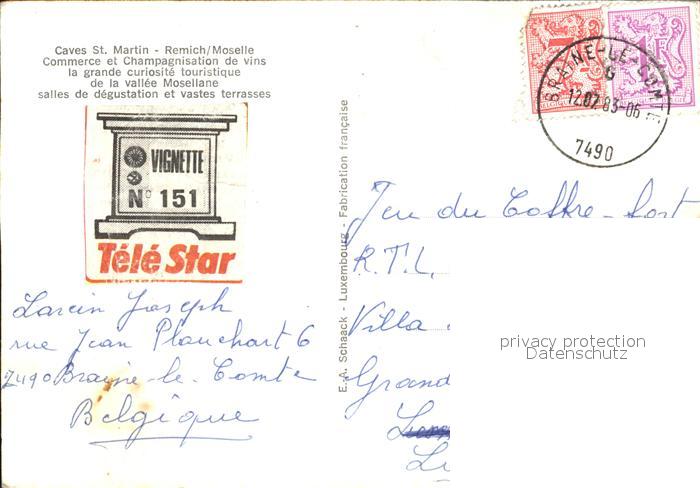 Caves St. Martin - Remich/Moselle
Commerce et Champagnisation de vins
la grande curiosité touristique
de la vallée Mosellane
salles de dégustation et vastes terrasses
VIGNETTE
N° 151
Télé Star
Larcin Joseph
rue Jean Planchart 6
7490 Braine-le-Comte
Belgique
E.A. Schaack - Luxembourg - Fabrication française
BRAINE-LE-COMTE
G
12.07.83-06
7490
Jeu du Coffre-fort
R.T.L.
Villa
Grand
privacy protection
Datenschutz